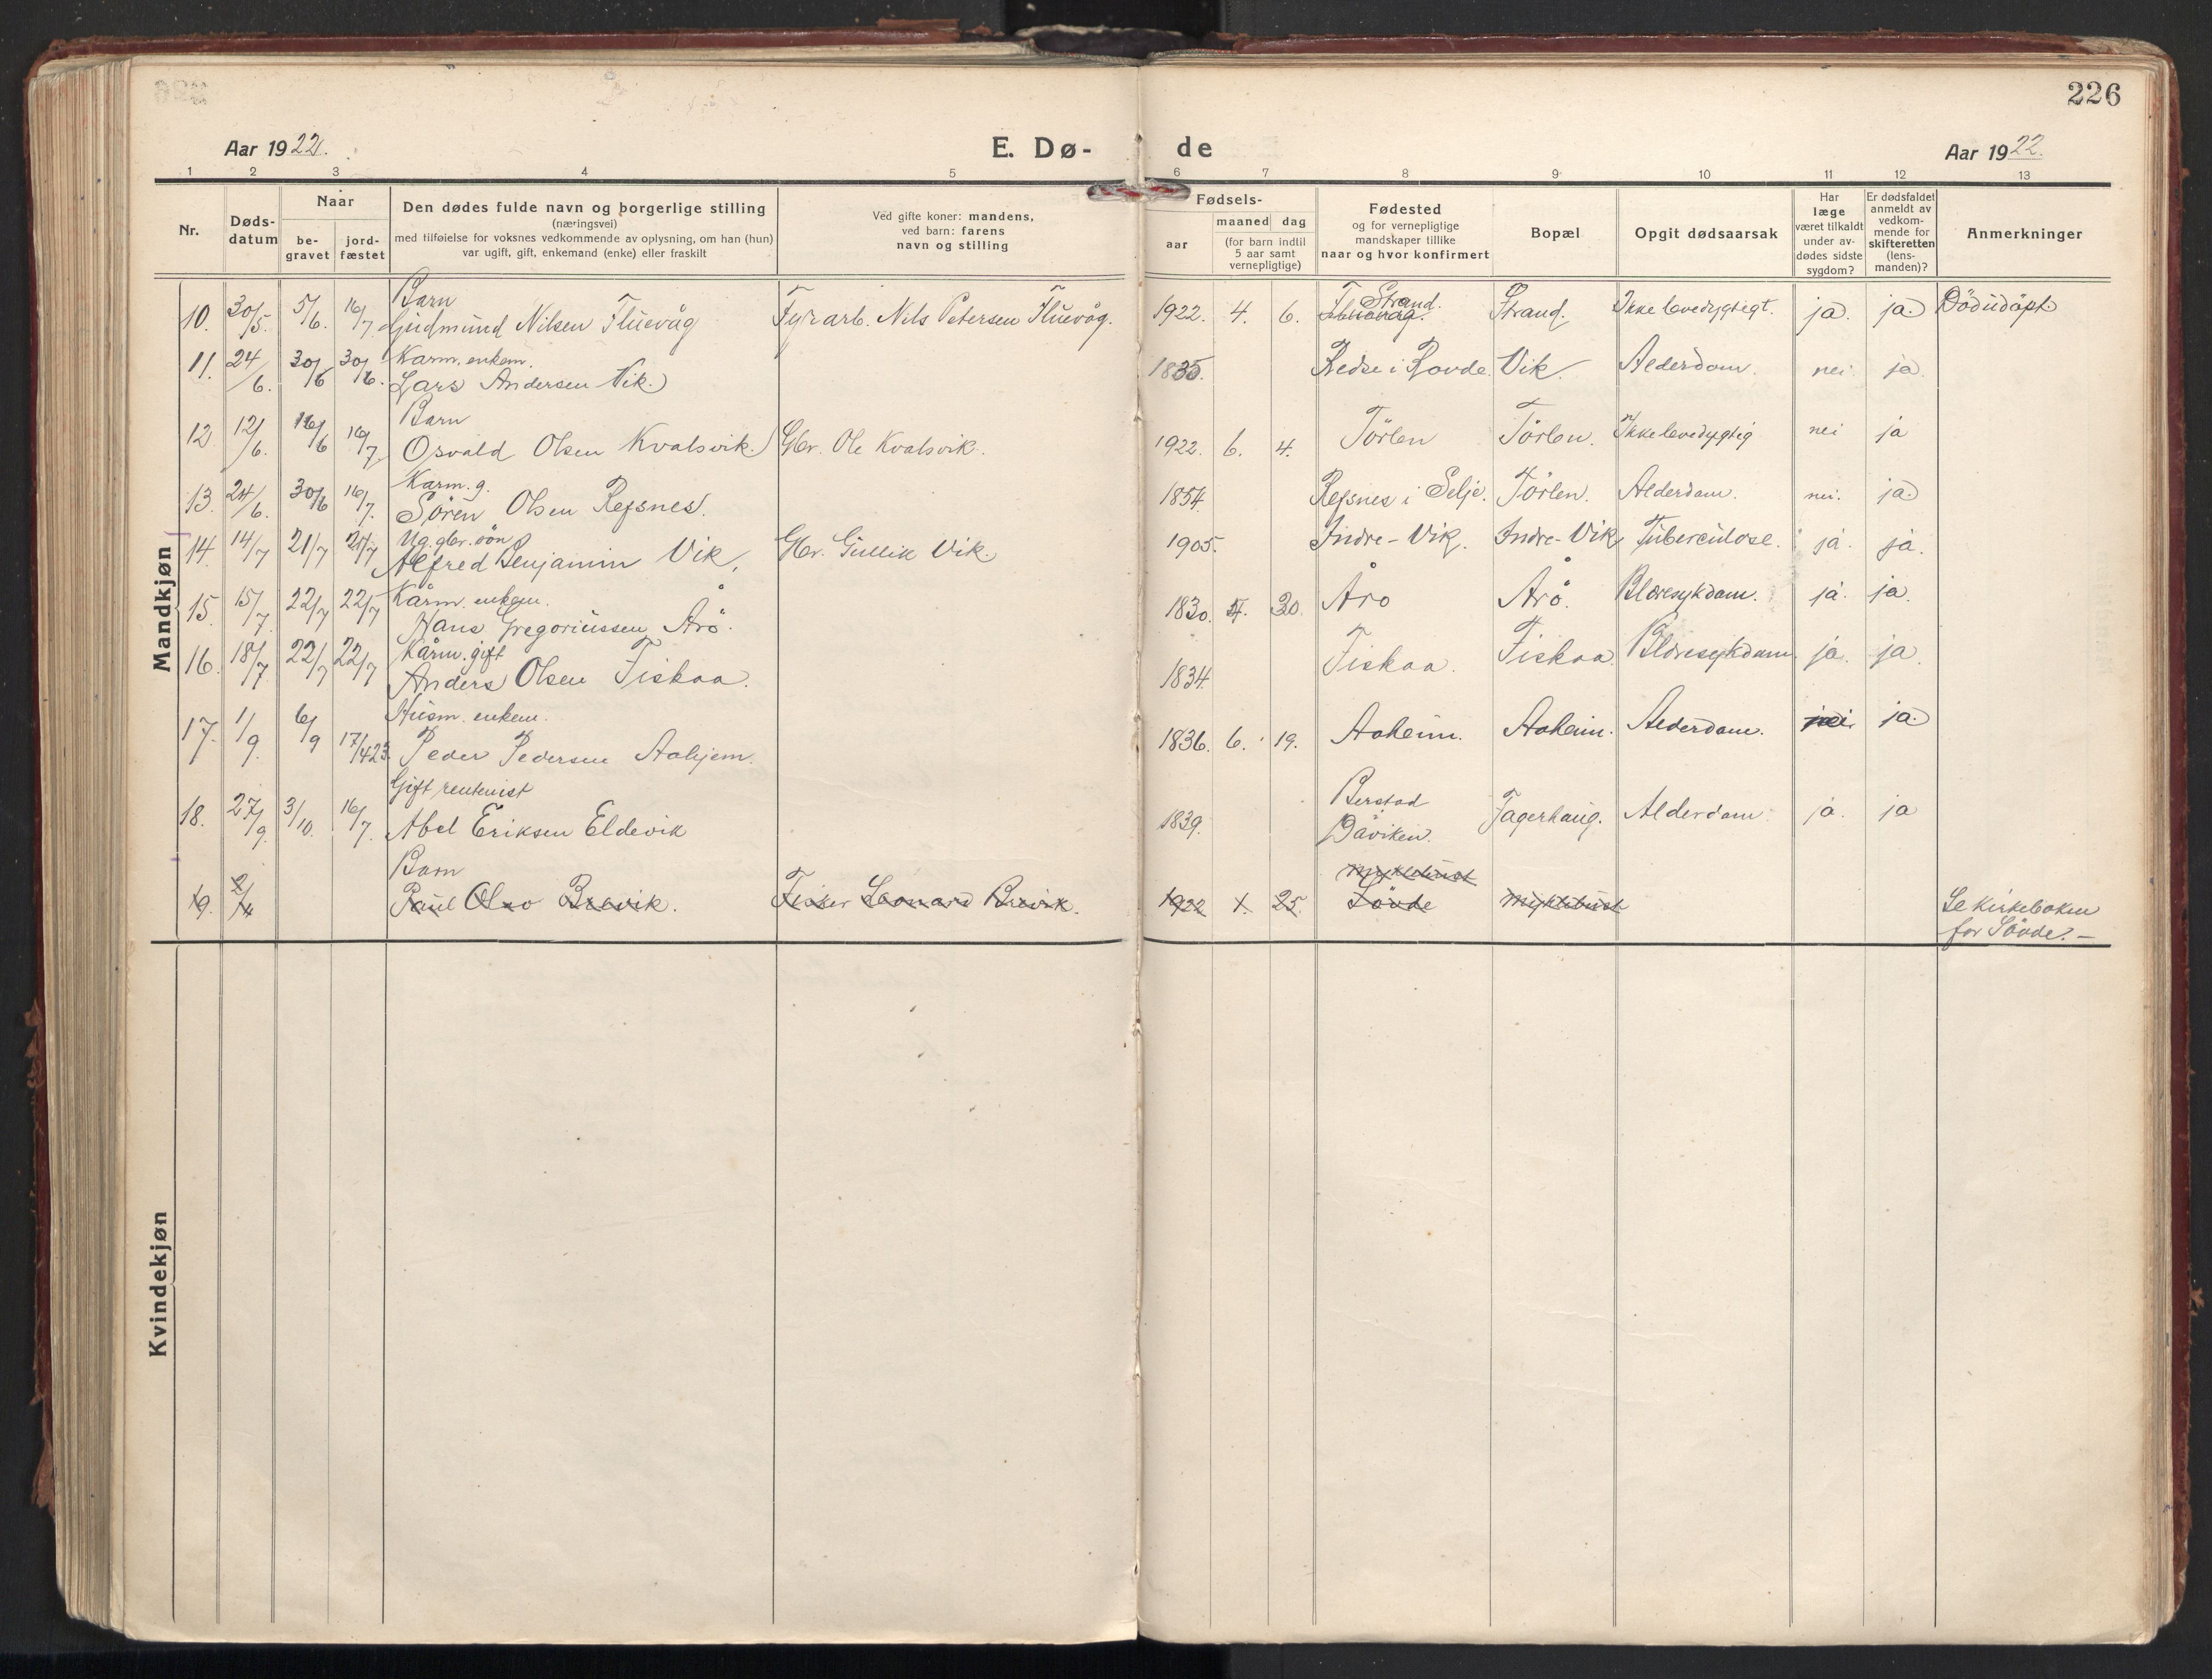 226
Aar 1922.
E. Dø-
de
Aar 1922.
1 2 3 4 5 6 7 8 9 10 11 12 13
Nr.
Døds-
datum
Naar
be-
gravet
jord-
fæstet
Den dødes fulde navn og borgerlige stilling
(næringsvei)
med tilføielse for voksnes vedkommende av oplysning, om han (hun)
var ugift, gift, enkemand (enke) eller fraskilt
Ved gifte koner: mandens,
ved barn: farens
navn og stilling
Fødsels-
aar
maaned dag
(for barn indtil
5 aar samt
vernepligtige)
Fødested
og for vernepligtige
mandskaper tillike
naar og hvor konfirmert
Bopæl
Opgit dødsaarsak
Har
læge
været tilkaldt
under av-
dødes sidste
sygdom?
Er dødsfaldet
anmeldt av
vedkom-
mende for
skifteretten
(lens-
manden)?
Anmerkninger
Mandkjøn
Barn Strand.
10. 30/5. 5/6. 16/7. Gudmund Nilsen Fluevåg Fyrarb. Nils Petersen Fluevåg. 1922. 4. 6. Strand. Ikke levedygtigt. ja. ja. Död udöpt.
Karm. enkem.
11. 24/6. 30/6 30/6. Lars Andersen Vik. 1835. Redse i Rovde. Vik. Alderdom. nei. ja.
Barn
12. 12/6. 16/6 16/7 Osvald Olsen Kvalsvik. Gbr. Ole Kvalsvik. 1922. 6. 4. Törlen Törlen. Ikke levedygtig nei ja
Karm. g.
13. 24/6. 30/6 16/7. Sören Olsen Refsnes. 1854. Refsnes i Selje. Törlen. Alderdom. nei. ja.
Ug. gbr. sön
14. 14/7 21/7 21/7 Alfred Benjamin Vik. Gbr. Gullik Vik. 1905. Indre-Vik. Indre-Vik Tuberculose. ja. ja.
Kårm. enkem.
15. 15/7. 22/7 22/7 Hans Gregoriussen Årö. 1830. 4. 20. Årö Årö. Blæresykdom. ja. ja.
Kårm. gift
16. 18/7. 22/7 22/7 Anders Olsen Fiskaa. 1834. Fiskaa. Fiskaa. Blæresykdom ja. ja.
Husm. enkem.
17. 1/9. 6/9 17/4 23. Peder Pedersen Aahjem. 1836. 6. 19. Aaheim. Aaheim. Alderdom. nei. ja.
Gift rentenist Berstad
18. 27/9. 3/10. 16/7. Abel Eriksen Eldevik 1839. Daviken. Fagerhaug. Alderdom. ja. ja
Barn Myklebust
19. 2/4 Paul Olav Brevik. Fisker Leonard Brevik. 1922 1. 25. Sövde Myklebust Se kirkeboken
for Sövde. -
Kvindekjøn